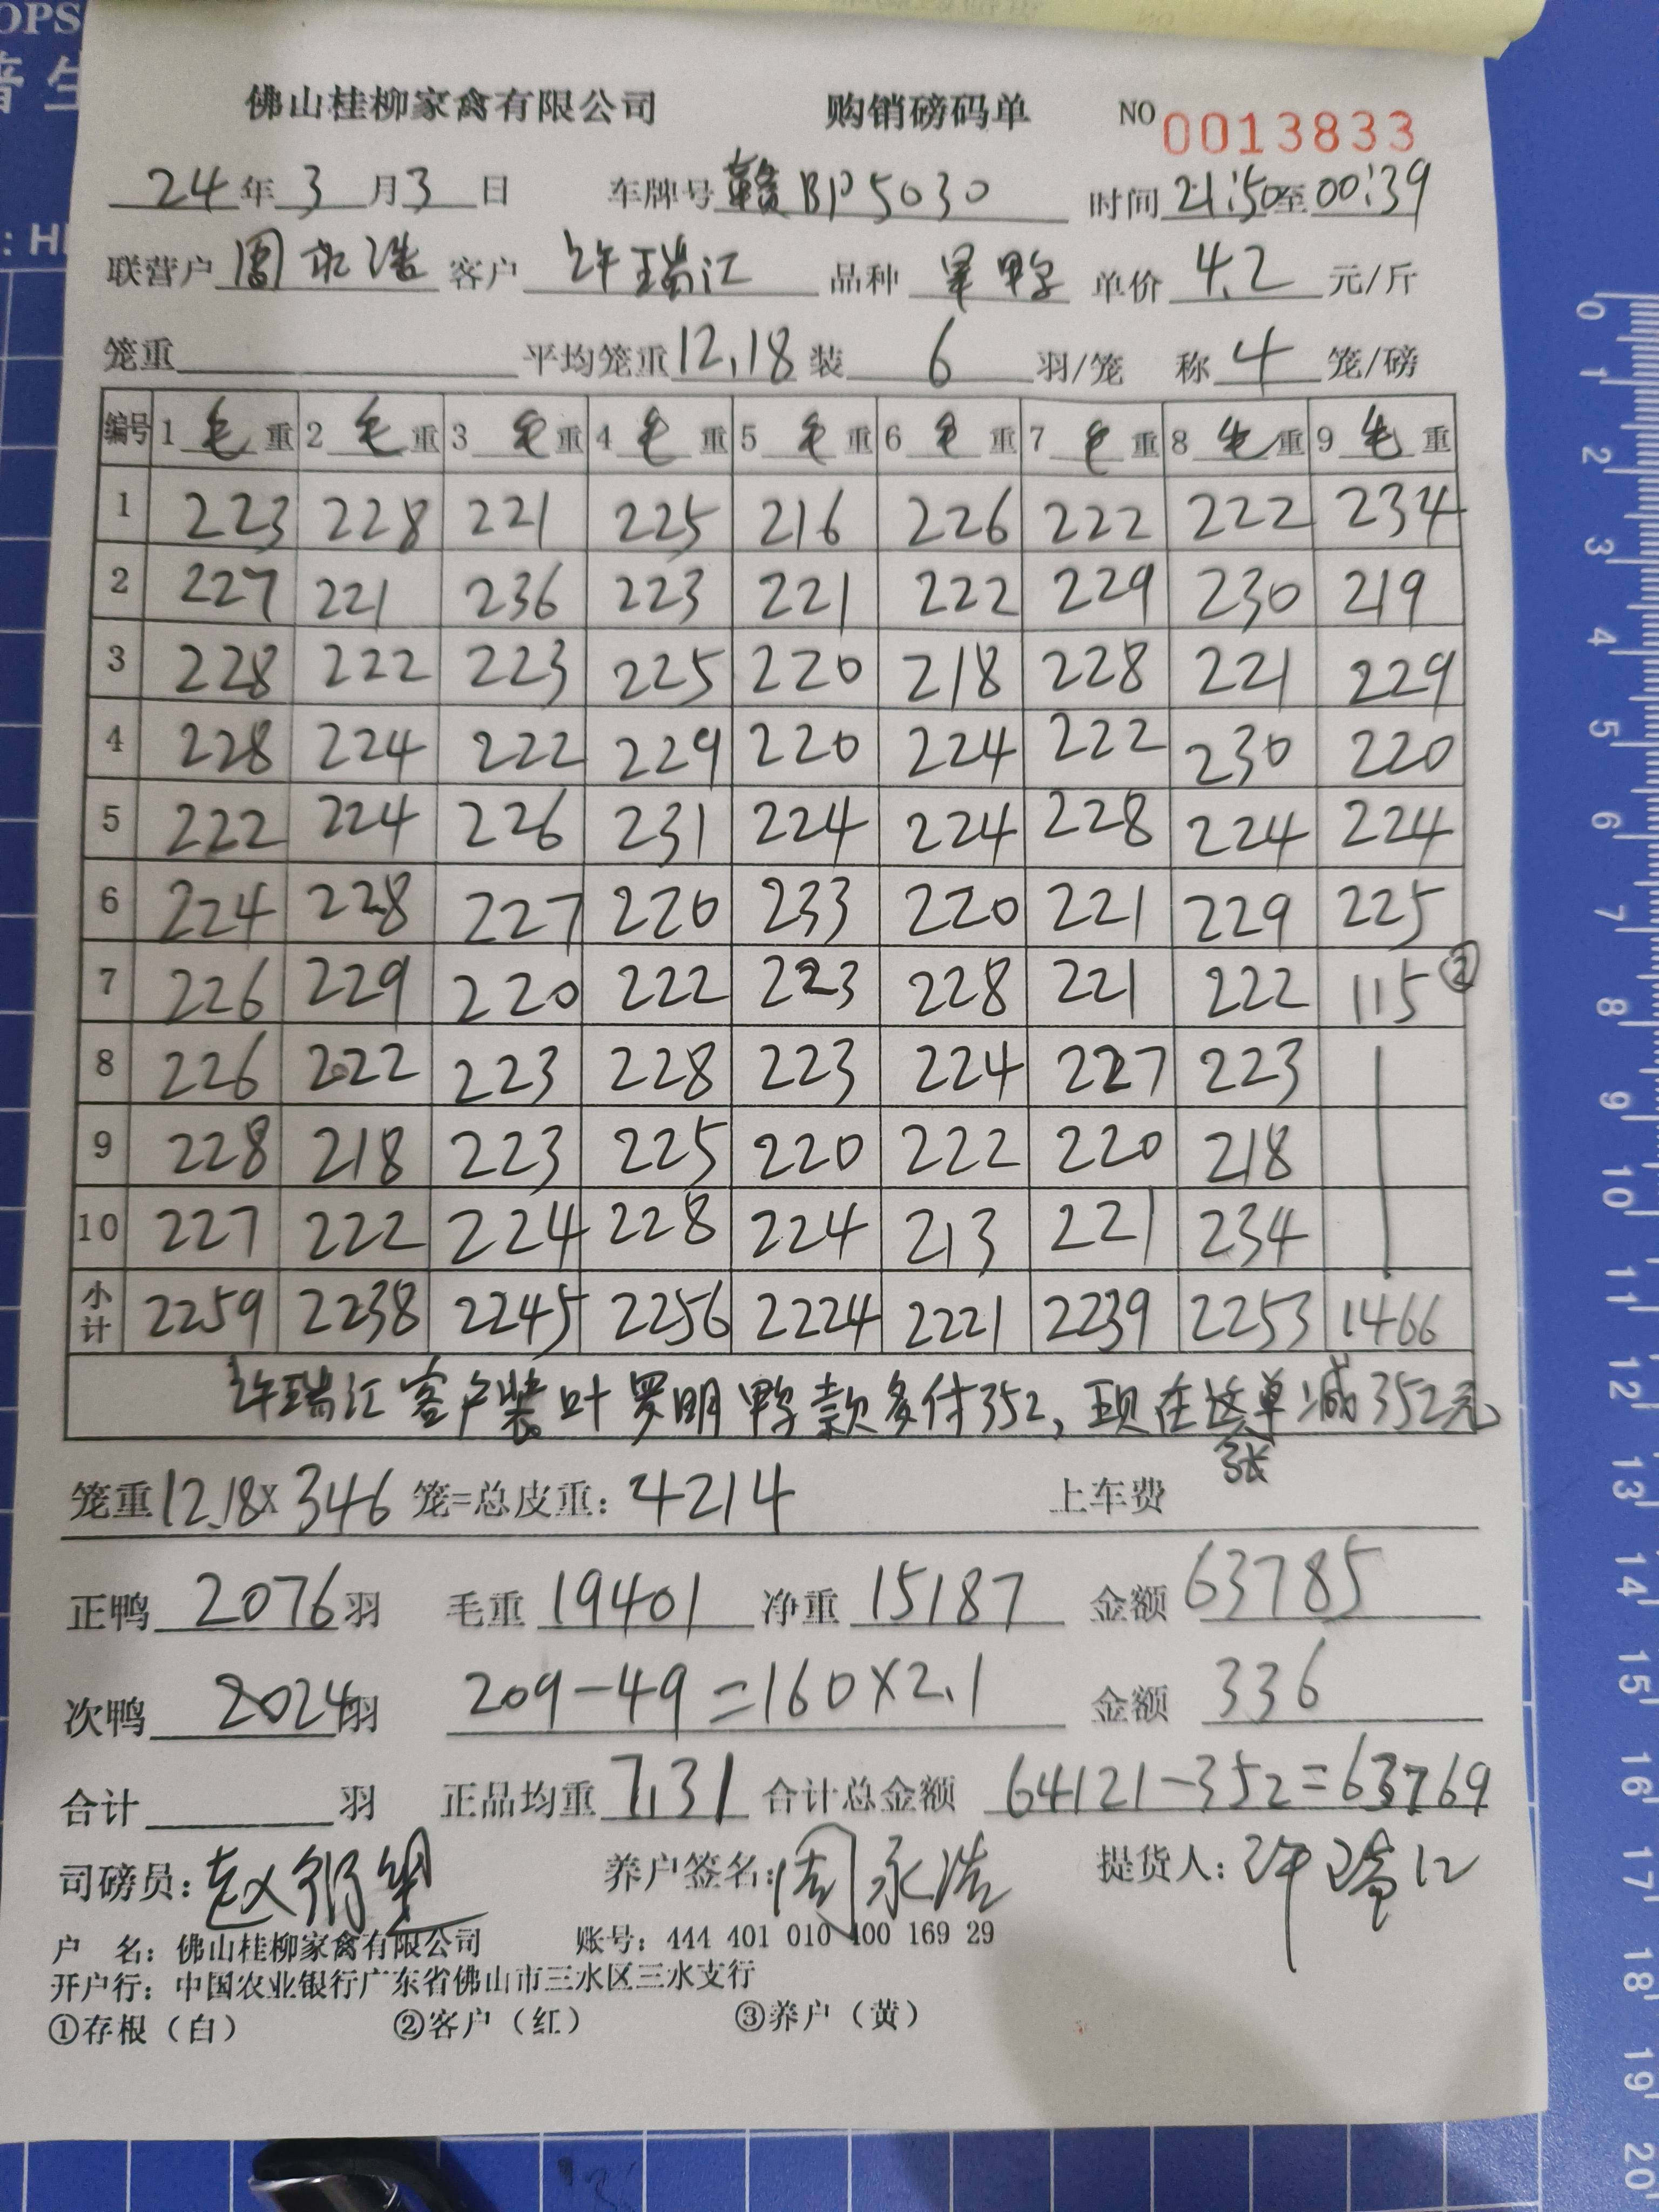 佛山桂柳家禽有限公司 购销磅码单 NO 0013833
24年3月3日 车牌号赣BP5030 时间21:50至00:39
联营户周永浩 客户许瑞江 品种 单价4.2元/斤
笼重 平均笼重12.18装6羽/笼 称4笼/磅
编号 1毛重 2毛重 3毛重 4毛重 5毛重 6毛重 7毛重 8毛重 9毛重
1 223 228 221 225 216 226 222 222 234
2 227 221 236 223 221 222 229 230 219
3 228 222 223 225 220 218 228 221 229
4 228 224 222 229 220 224 222 230 220
5 222 224 226 231 224 224 228 224 224
6 224 228 227 220 233 220 221 229 225
7 226 229 220 222 223 228 221 222 115②
8 226 222 223 228 223 224 227 223
9 228 218 223 225 220 222 220 218
10 227 222 224 228 224 213 221 234
小计 2259 2238 2245 2256 2224 2221 2239 2253 1466
许瑞江客户装叶罗明鸭款多付352,现在这张单减352元
笼重12.18×346笼=总皮重:4214 上车费
正鸭2076羽 毛重19401 净重15187 金额63785
次鸭2024羽 209-49=160×2.1 金额336
合计 羽 正品均重7.31 合计总金额64121-352=63769
司磅员: 养户签名:周永浩 提货人:许瑞江
户 名:佛山桂柳家禽有限公司 账号:444 401 010 400 169 29
开户行:中国农业银行广东省佛山市三水区三水支行
①存根(白) ②客户(红) ③养户(黄)
OPS
普生
: H
0
1
2
3
4
5
6
7
8
9
10
11
12
13
14
15
16
17
18
19
20